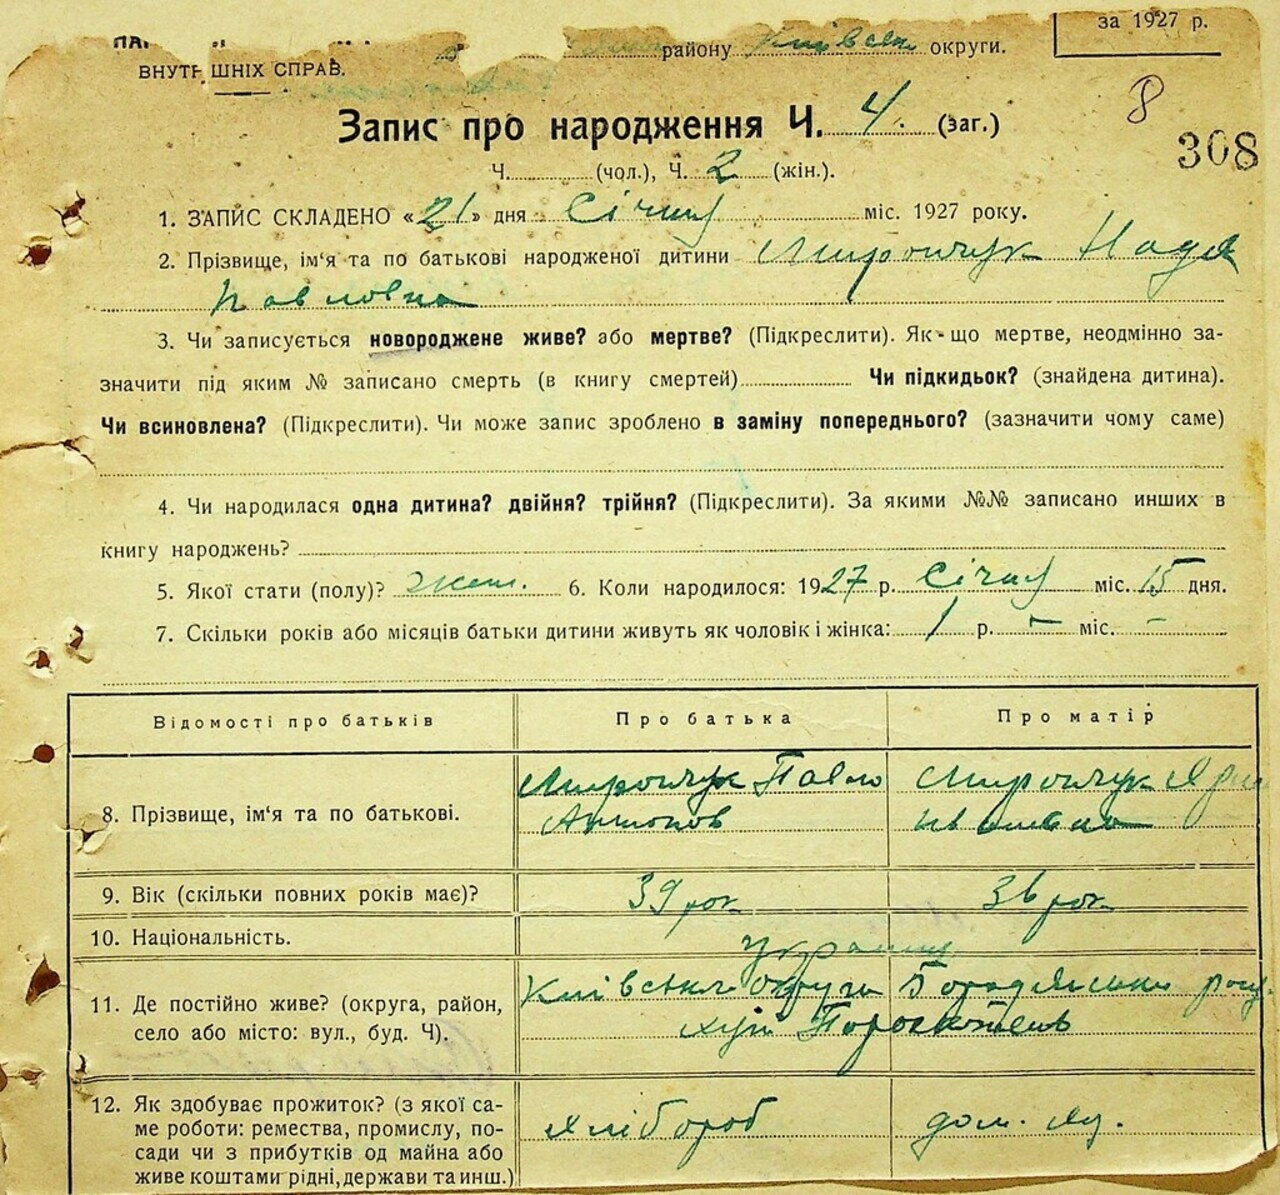 за 1927 р.
району Київськ округи.
ВНУТРІШНІХ СПРАВ.
8
Запис про народження Ч. 4. (заг.)
308
Ч. (чол.), Ч. 2 (жін.).
1. ЗАПИС СКЛАДЕНО «21» дня Січня міс. 1927 року.
2. Прізвище, ім'я та по батькові народженої дитини Мирончук Надя
Павловна
3. Чи записується новороджене живе? або мертве? (Підкреслити). Як-що мертве, неодмінно за-
значити під яким № записано смерть (в книгу смертей) Чи підкидьок? (знайдена дитина).
Чи всиновлена? (Підкреслити). Чи може запис зроблено в заміну попереднього? (зазначити чому саме)
4. Чи народилася одна дитина? двійня? трійня? (Підкреслити). За якими №№ записано инших в
книгу народжень?
5. Якої стати (полу)? жен. 6. Коли народилося: 1927 р. Січня міс. 15 дня.
7. Скільки років або місяців батьки дитини живуть як чоловік і жінка: 1 р. – міс. –
Відомості про батьків Про батька Про матір
8. Прізвище, ім'я та по батькові.
Мирончук Павло
Антонов
Мирончук
Ивановна
9. Вік (скільки повних років має)? 39 рок 36 рок
10. Національність.
11. Де постійно живе? (округа, район,
село або місто: вул., буд. Ч).
Київська округа Бородянськи
хут
12. Як здобуває прожиток? (з якої са-
ме роботи: ремества, промислу, по-
сади чи з прибутків од майна або
живе коштами рідні, держави та инш.)
хлібороб
дом.